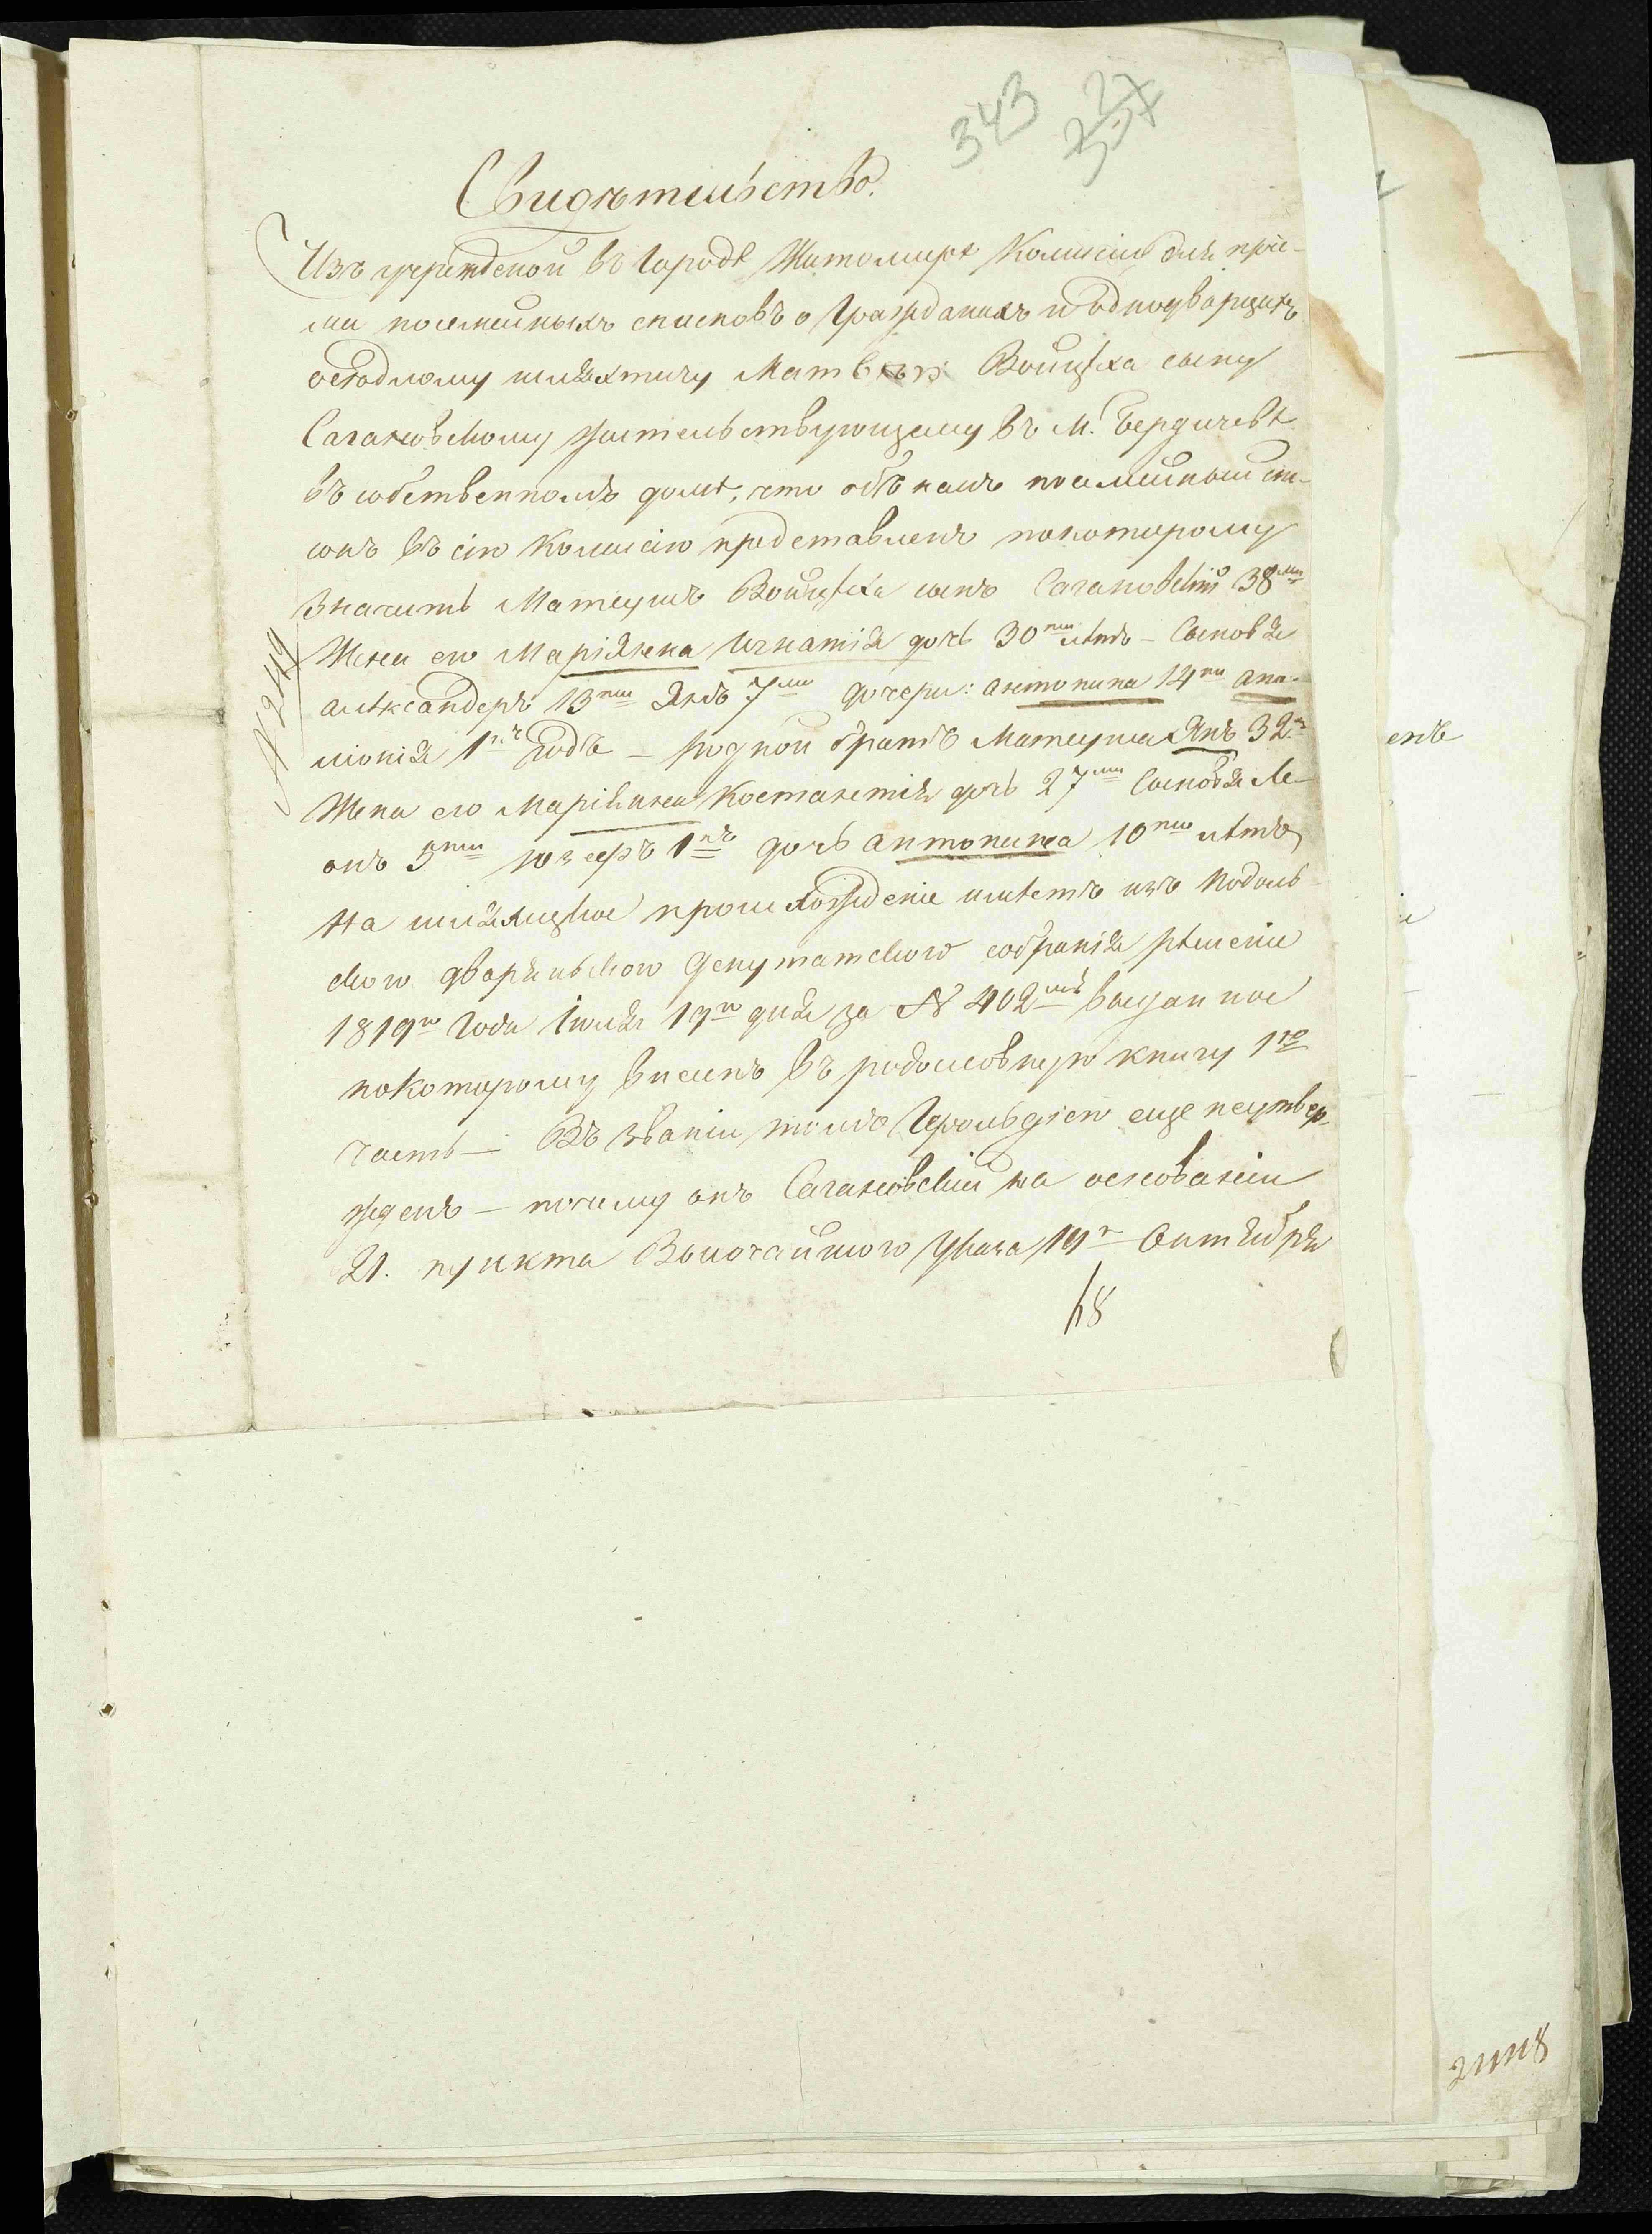 343 27
337
Свидѣтельство.
Изъ учрежденой въ Городѣ Житомирѣ Комисіи для пріе-
ма посемейныхъ списковъ о Гражданахъ и однодворцахъ
осѣдлому шляхтичу Матвѣю Войцѣха сыну
Сагановскому жительствующему въ М. Бердичевѣ
въ собственномъ домѣ, что объ немъ посемейный спи-
сокъ въ сію Комисію представленъ покоторому
значитъ Матеушъ Войцѣха сынъ Сагановскій 38ми
Жена его Маріянна Игнатія дочь 30ти лѣтъ – Сыновья
Алѣксандеръ 13ти Янъ 7ми дочери: Антонина 14ти Апо-
лонія 1нъ Годъ – родной братъ Матеуша Янъ 32х
Жена его Маріянна Костантія дочь 27ми Сыновья Ле-
онъ 5ти Юзефъ 1нъ дочь Антонина 10ти лѣтъ,
На шляхецкое происхожденіе имѣетъ изъ Подоль-
ского дворянского Депутатского собранія рѣшеніе
1819го Года Іюля 19го дня за № 402мъ выданное
покоторому внесенъ въ родословную книгу 1ю
часть – Въ званіи томъ Герольдіею еще неутвер-
жденъ – почему онъ Сагановскій на основаніи
21. пункта Высочайшого Указа 19го Октября
№ 2419
енъ